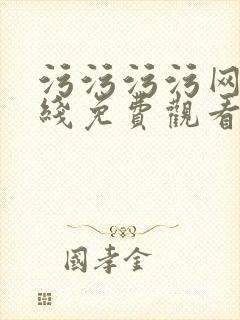 污污污污网
綫免費觀看
國李金